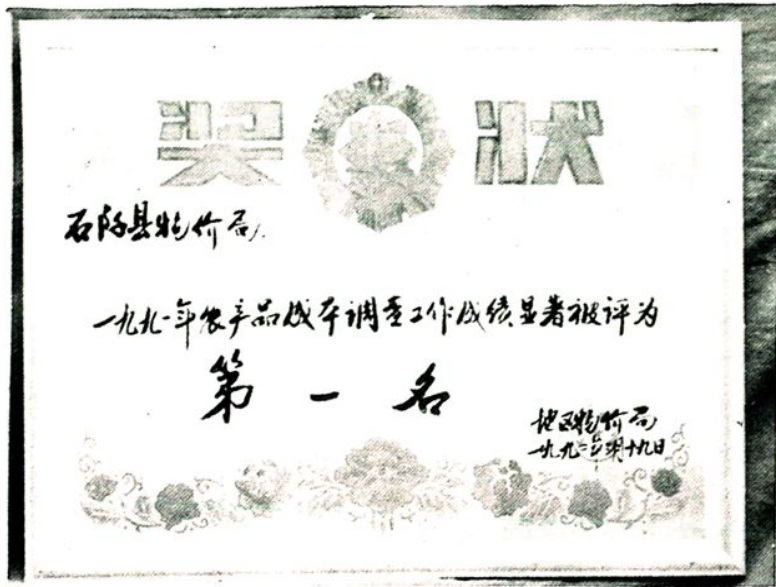 奖状
石阡县物价局
一九九一年农产品成本调查工作成绩显著被评为
第一名
地区物价局
一九九二年月十九日